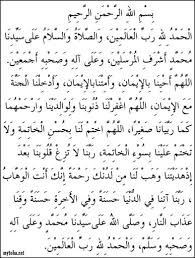 بِسْمِ اللهِ الرَّحْمَنِ الرَّحِيْمِ
الْحَمْدُ لِلَّهِ رَبِّ الْعَالَمِيْنَ، وَالصَّلَاةُ وَالسَّلَامُ عَلَى سَيِّدِنَا
مُحَمَّدٍ أَشْرَفِ الْمُرْسَلِيْنَ، وَعَلَى آلِهِ وَصَحْبِهِ أَجْمَعِيْنَ.
اللَّهُمَّ أَحْيِنَا بِالإِيْمَانِ، وَأَمِتْنَا بِالإِيْمَانِ، وَأَدْخِلْنَا الْجَنَّةَ
مَعَ الإِيْمَانِ، اللَّهُمَّ اغْفِرْ لَنَا ذُنُوْبَنَا وَلِوَالِدِيْنَا وَارْحَمْهُمَا
كَمَا رَبَّيَانَا صِغَيْرًا، اللَّهُمَّ اخْتِمْ لَنَا بِحُسْنِ الْخَاتِمَةِ وَلَا
تَخْتِمْ عَلَيْنَا بِسُوْءِ الْخَاتِمَةِ، رَبَّنَا لَا تُزِغْ قُلُوْبَنَا بَعْدَ
إِذْ هَدَيْتَنَا وَهَبْ لَنَا مِنْ لَدُنْكَ رَحْمَةً إِنَّكَ أَنْتَ الْوَهَّابُ
رَبَّنَا آتِنَا فِي الدُّنْيَا حَسَنَةً وَفِي الآخِرَةِ حَسَنَةً وَقِنَا
عَذَابَ النَّارِ، وَصَلَّى اللهُ عَلَى سَيِّدِنَا مُحَمَّدٍ وَعَلَى آلِهِ
وَصَحْبِهِ وَسَلَّمَ، وَالْحَمْدُ لِلَّهِ رَبِّ الْعَالَمِيْنَ.